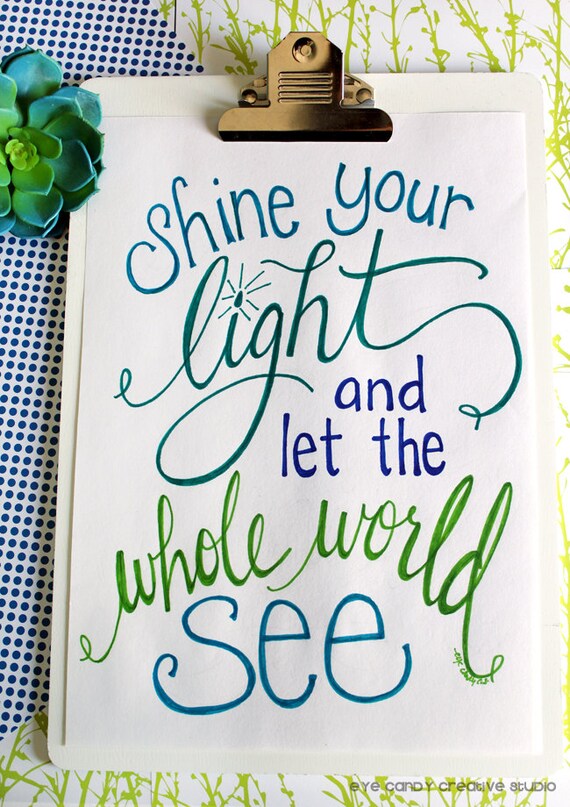 shine your
light
and
let the
whole world
see
EYE CANDY CREATIVE STUDIO